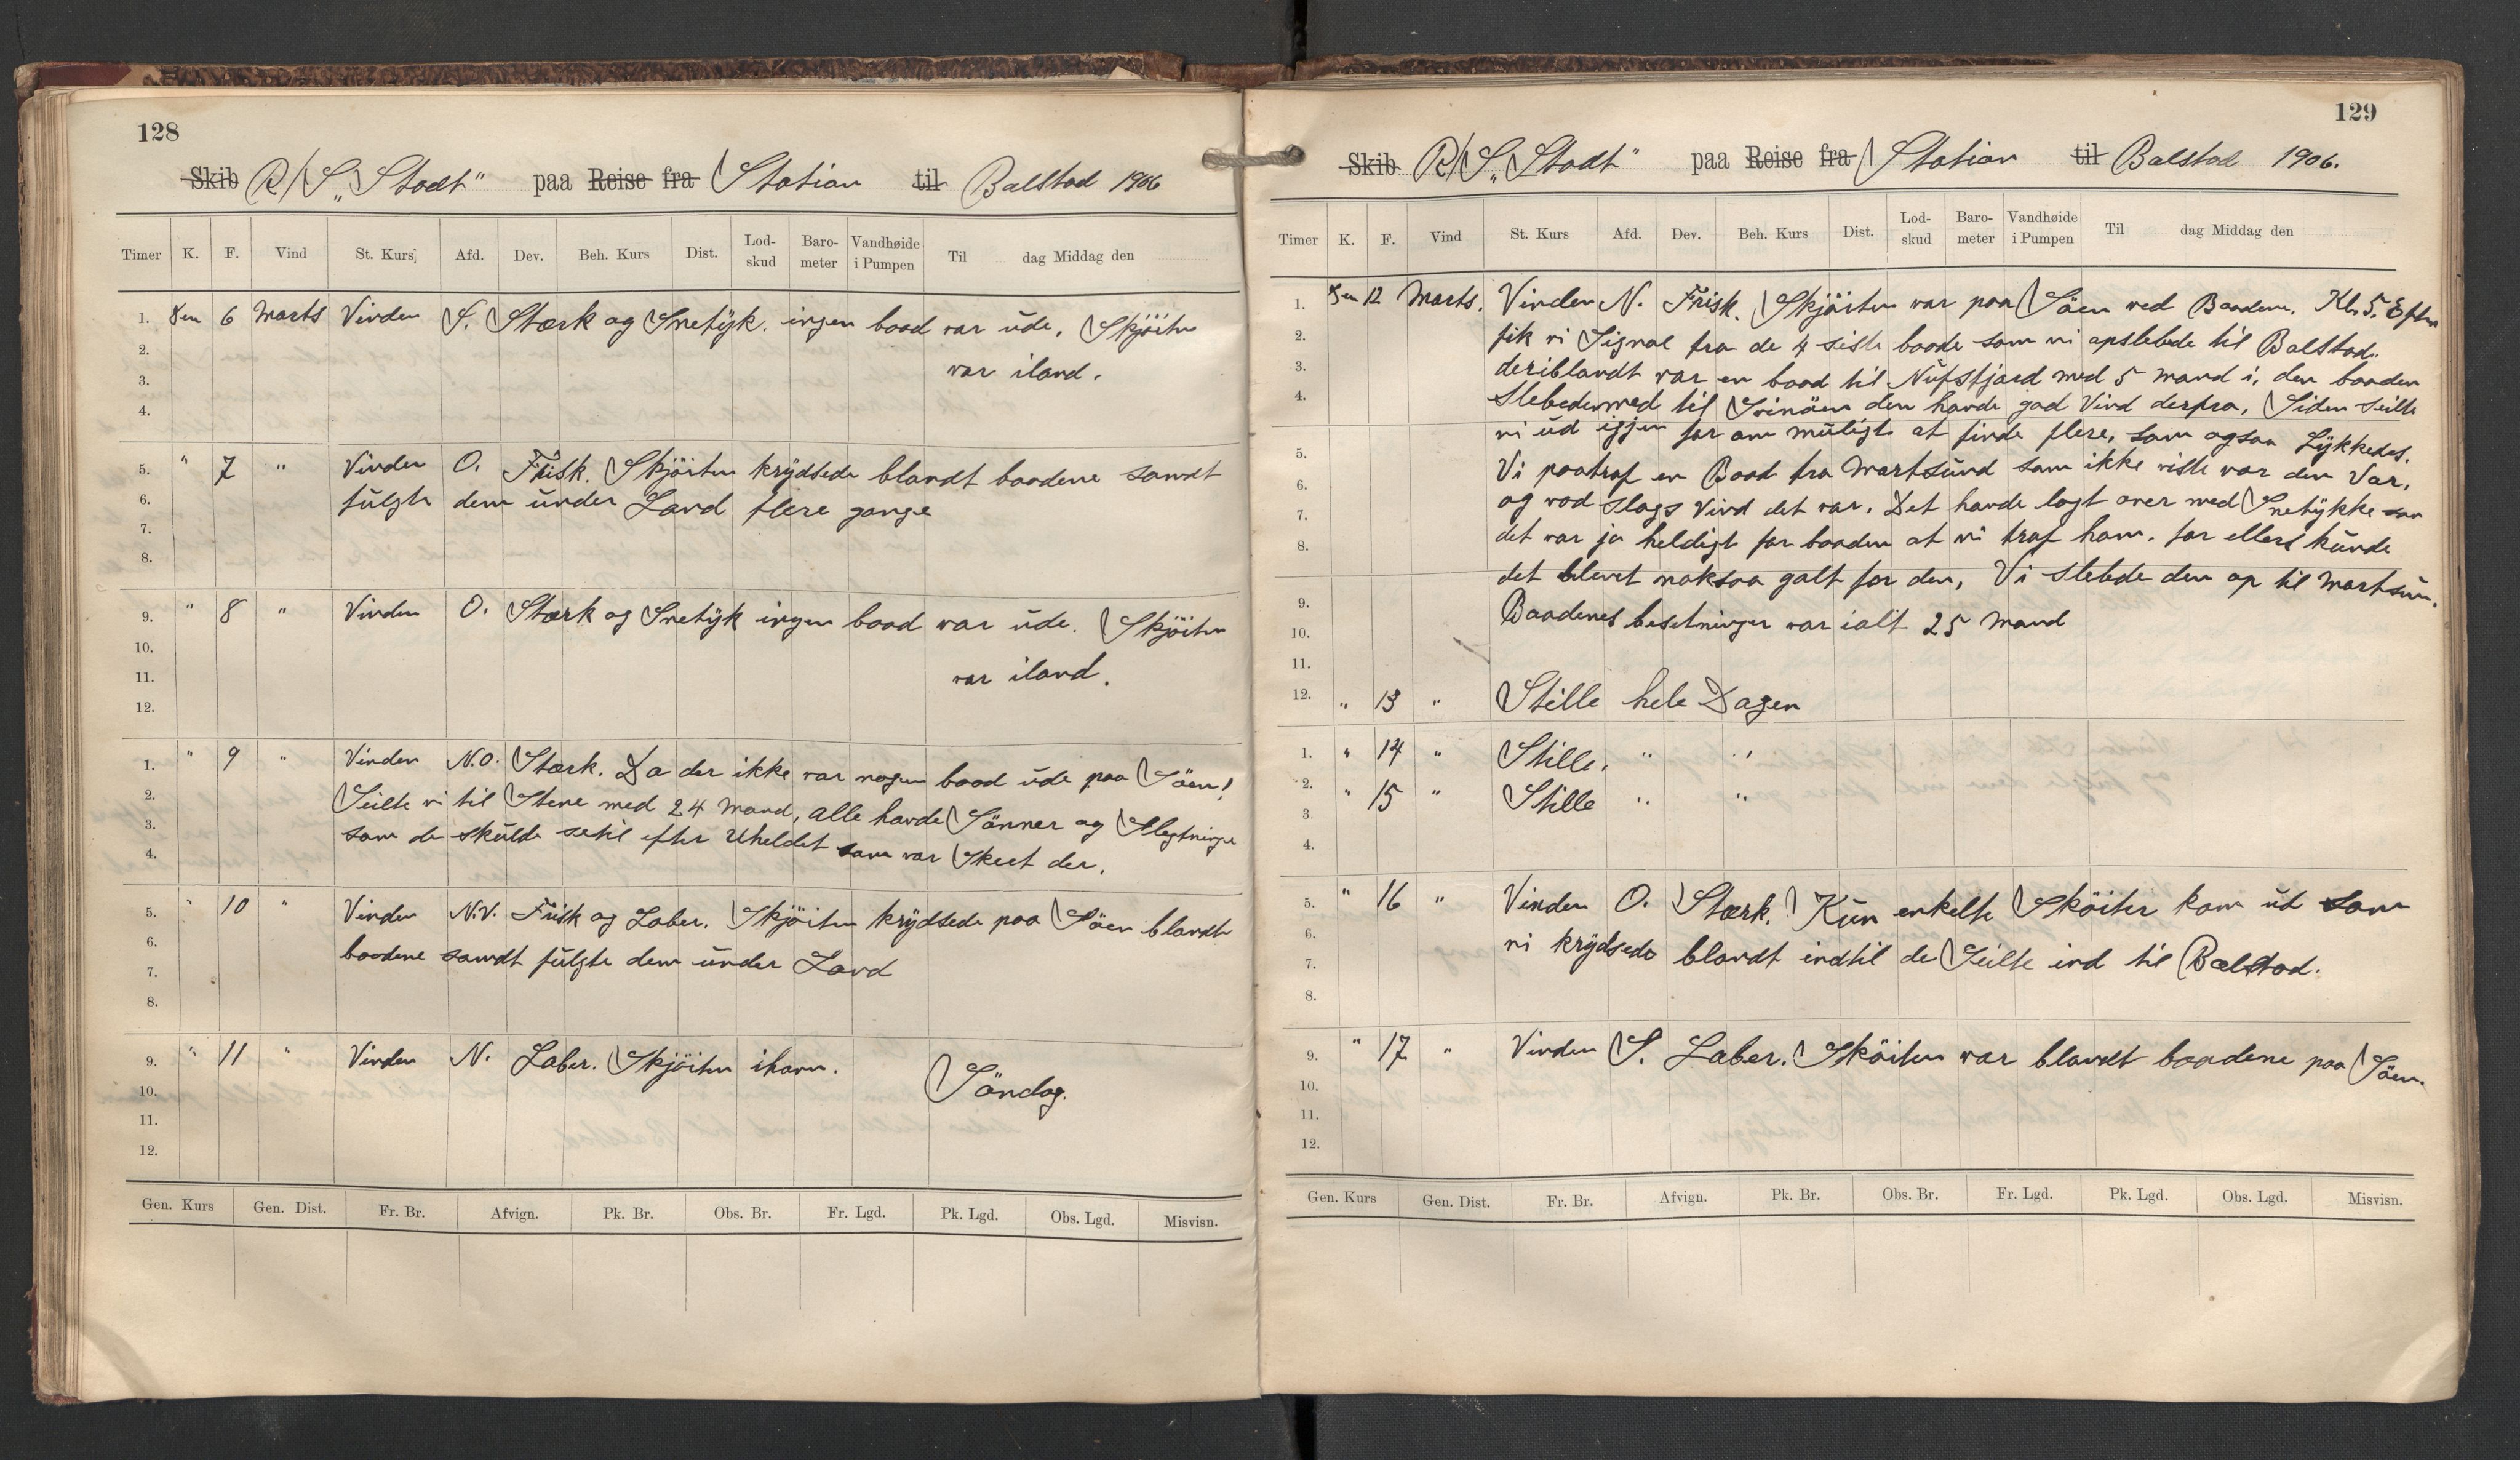 128
Skib R/S „Stadt" paa Reise fra Station til Balstad 1906
Timer K. F. Vind St. Kurs Afd. Dev. Beh. Kurs Dist. Lod-skud Baro-meter Vandhøide i Pumpen Til dag Middag den
1. Den 6 Marts Vinden S. Stærk og Snetÿk. ingen baad var ude, Skjöiten
2.
3. var iland.
4.
5. " 7 " Vinden O. Frisk. Skjöiten krÿdsede blandt baadene samdt
6. fulgte dem under Land flere gange
7.
8.
9. " 8 " Vinden O. Stærk og Snetÿk ingen baad var ude. Skjöiten
10.
11. var iland.
12.
1. " 9 " Vinden N.O. Stærk. Da der ikke var nogen baad ude paa Söen!
2. Seilte vi til Stene med 24 Mand, alle havde Sönner og Slegtninge
3. som de skulde setil efter Uheldet som var Skeet der.
4.
5. " 10 " Vinden N.V. Frisk og Laber. Skjöiten krÿdsede paa Söen blandt
6. baadene samdt fulgte dem under Land
7.
8.
9. " 11 " Vinden N. Laber. Skjöiten ihavn.
10. Söndag.
11.
12.
Gen. Kurs Gen. Dist. Fr. Br. Afvign. Pk. Br. Obs. Br. Fr. Lgd. Pk. Lgd. Obs. Lgd. Misvisn.
129
Skib R/S „Stadt" paa Reise fra Station til Balstad 1906.
Timer K. F. Vind St. Kurs Afd. Dev. Beh. Kurs Dist. Lod-skud Baro-meter Vandhøide i Pumpen Til dag Middag den
1. Den 12 Marts. Vinden N. Frisk. Skjöiten var paa Söen ved Baadene. Kl. 5. Efter
2. fik vi Signal fra de 4 siste baade som vi opslebede til Balstad.
3. deriblandt var en baad til Nufsfjord med 5 mand i, den baaden
4. Slebedesmed til Svinöen den havde god Vind derfra, Siden Seilte
vi ud igjen for om muligt at finde flere, som ogsaa Lÿkkedes.
5. Vi paatraf en Baad fra Martsund som ikke viste vor den Var,
6. og vod slags Vind det var. Det havde lagt over med Snetÿkke saa
7. det var jo heldigt for baaden at vi traf ham. for ellers kunde
8. det blevet noksaa galt for den, Vi slebede den op til Martsun.
9. Baadenes besetninger var ialt 25 Mand
10.
11.
12. " 13 " Stille hele Dagen
1. " 14 " Stille. " "
2. " 15 " Stille " "
3.
4.
5. " 16 " Vinden O. Stærk. Kun enkelte Sköiter kom ud som
6. vi krÿdsede blandt indtil de Seilte ind til Balstad.
7.
8.
9. " 17 " Vinden S. Laber. Sköiten var blandt baadene paa Söen.
10.
11.
12.
Gen. Kurs Gen. Dist. Fr. Br. Afvign. Pk. Br. Obs. Br. Fr. Lgd. Pk. Lgd. Obs. Lgd. Misvisn.